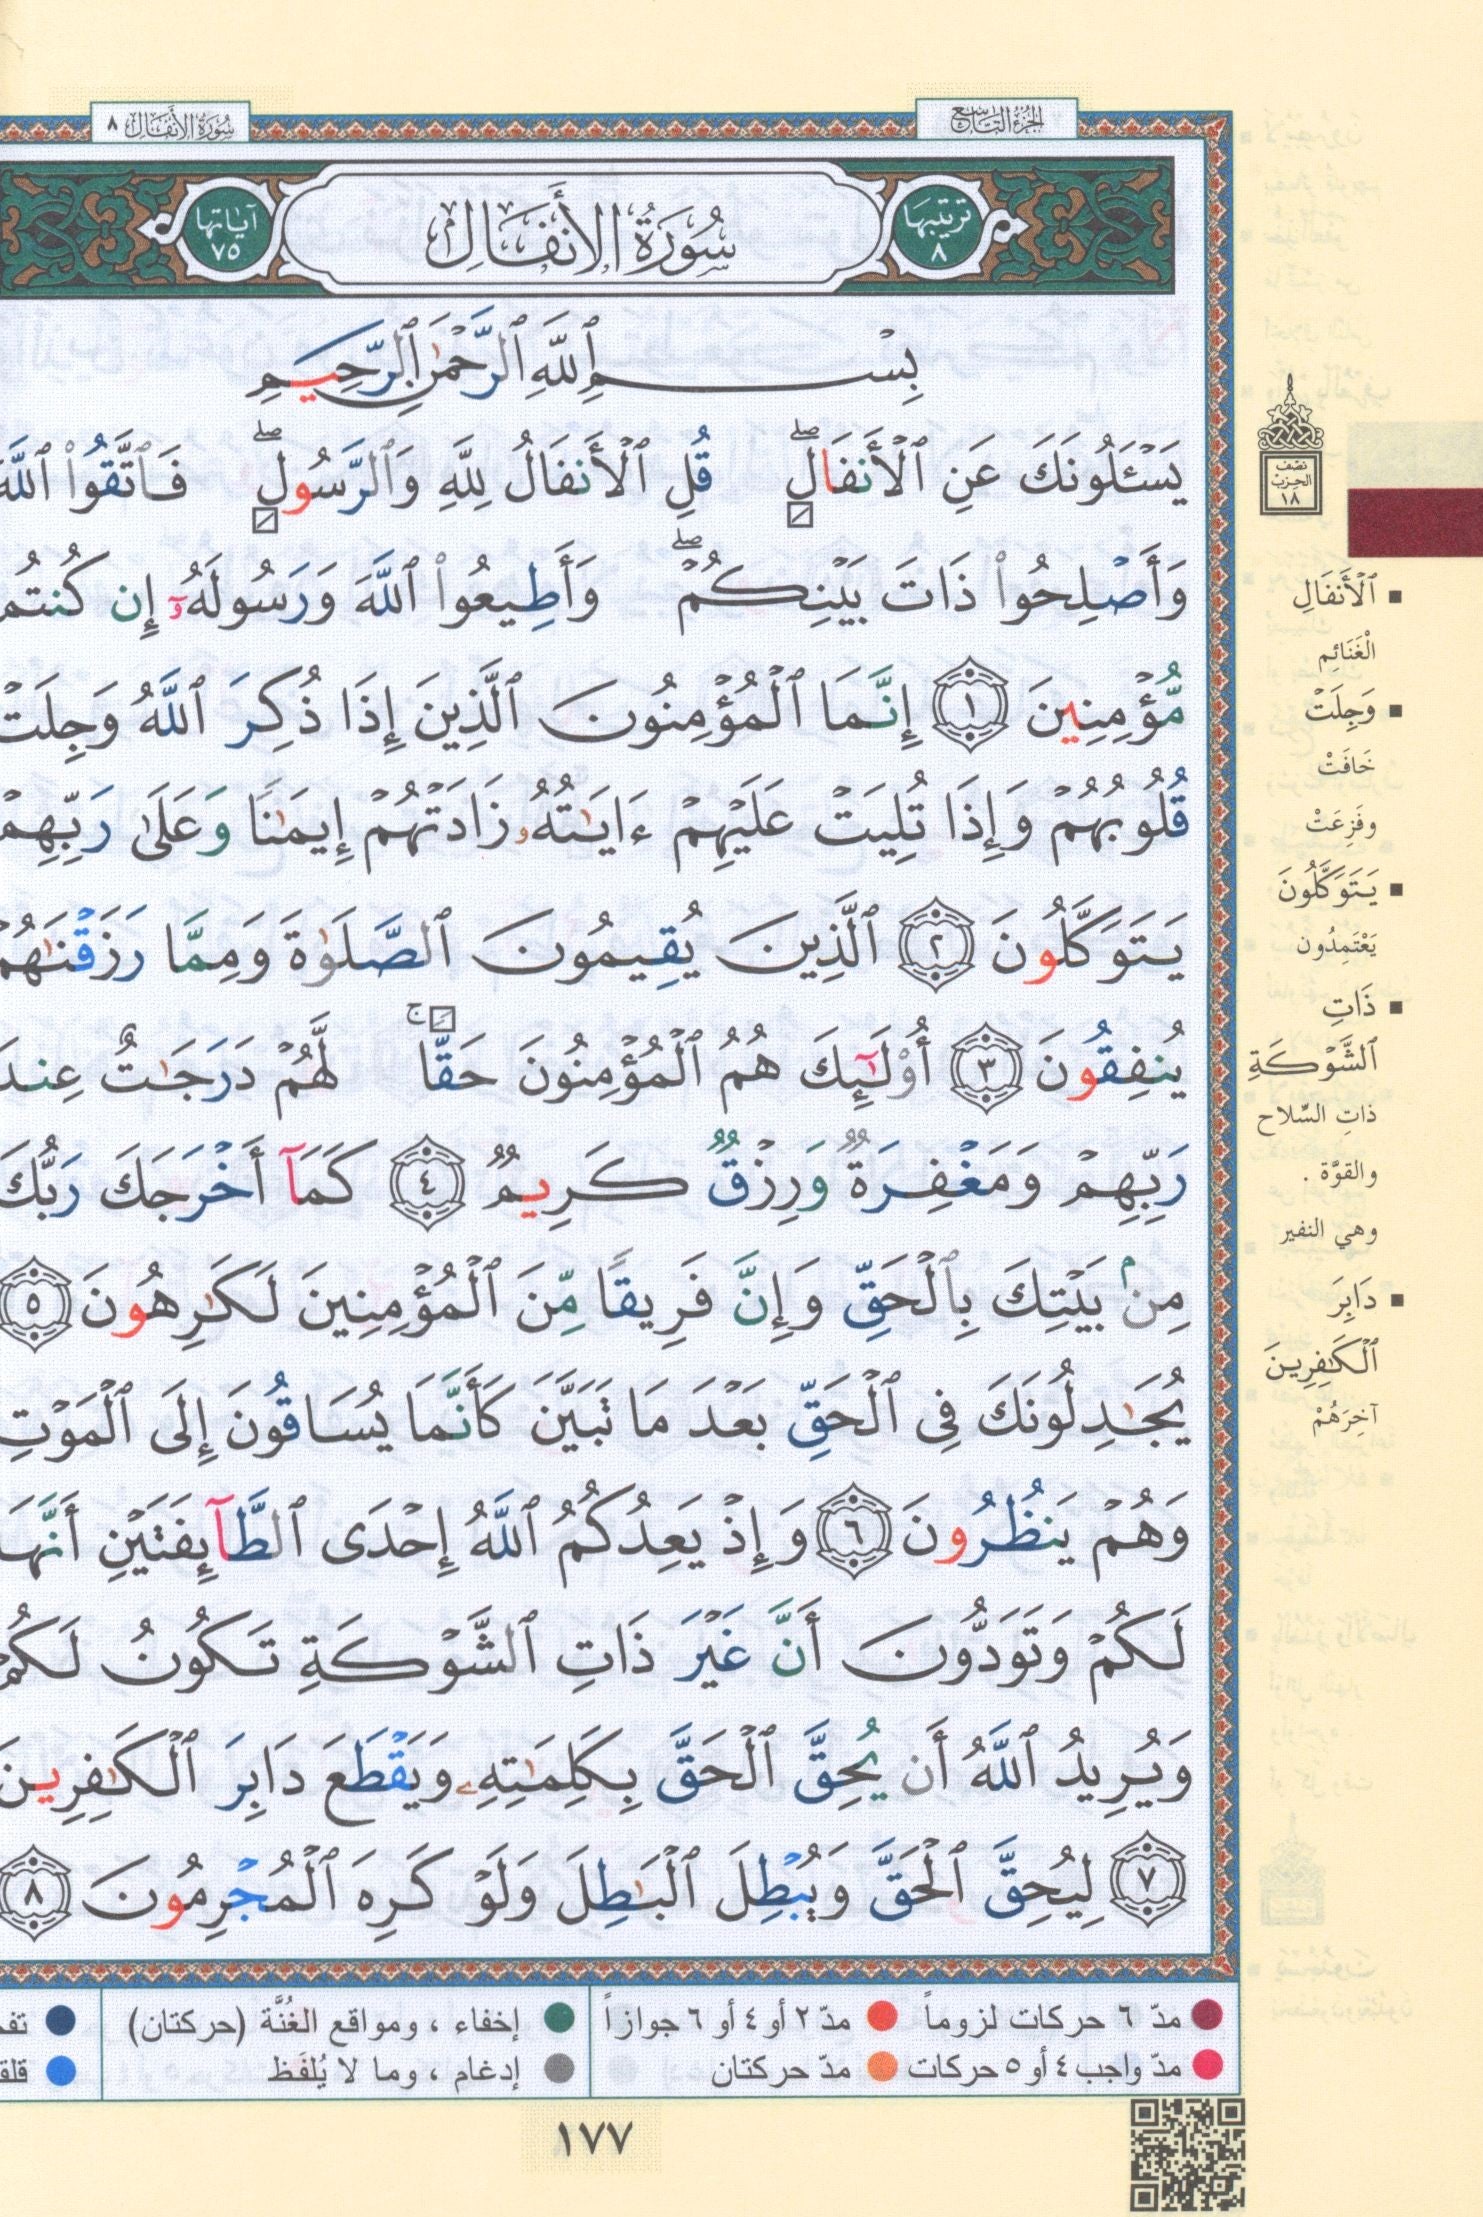 الجزء التاسع
سورة الأنفال ٨
ترتيبها ٨
سُورَةُ الأَنفَالِ
آياتها ٧٥
بِسْمِ ٱللَّهِ ٱلرَّحْمَٰنِ ٱلرَّحِيمِ
يَسْـَٔلُونَكَ عَنِ ٱلْأَنفَالِ ۖ قُلِ ٱلْأَنفَالُ لِلَّهِ وَٱلرَّسُولِ ۖ فَٱتَّقُوا۟ ٱللَّهَ
وَأَصْلِحُوا۟ ذَاتَ بَيْنِكُمْ ۖ وَأَطِيعُوا۟ ٱللَّهَ وَرَسُولَهُۥٓ إِن كُنتُم
مُّؤْمِنِينَ ١ إِنَّمَا ٱلْمُؤْمِنُونَ ٱلَّذِينَ إِذَا ذُكِرَ ٱللَّهُ وَجِلَتْ
قُلُوبُهُمْ وَإِذَا تُلِيَتْ عَلَيْهِمْ ءَايَٰتُهُۥ زَادَتْهُمْ إِيمَٰنًا وَعَلَىٰ رَبِّهِمْ
يَتَوَكَّلُونَ ٢ ٱلَّذِينَ يُقِيمُونَ ٱلصَّلَوٰةَ وَمِمَّا رَزَقْنَٰهُمْ
يُنفِقُونَ ٣ أُو۟لَٰٓئِكَ هُمُ ٱلْمُؤْمِنُونَ حَقًّا ۚ لَّهُمْ دَرَجَٰتٌ عِندَ
رَبِّهِمْ وَمَغْفِرَةٌ وَرِزْقٌ كَرِيمٌ ٤ كَمَآ أَخْرَجَكَ رَبُّكَ
مِنۢ بَيْتِكَ بِٱلْحَقِّ وَإِنَّ فَرِيقًا مِّنَ ٱلْمُؤْمِنِينَ لَكَٰرِهُونَ ٥
يُجَٰدِلُونَكَ فِى ٱلْحَقِّ بَعْدَ مَا تَبَيَّنَ كَأَنَّمَا يُسَاقُونَ إِلَى ٱلْمَوْتِ
وَهُمْ يَنظُرُونَ ٦ وَإِذْ يَعِدُكُمُ ٱللَّهُ إِحْدَى ٱلطَّآئِفَتَيْنِ أَنَّهَا
لَكُمْ وَتَوَدُّونَ أَنَّ غَيْرَ ذَاتِ ٱلشَّوْكَةِ تَكُونُ لَكُمْ
وَيُرِيدُ ٱللَّهُ أَن يُحِقَّ ٱلْحَقَّ بِكَلِمَٰتِهِۦ وَيَقْطَعَ دَابِرَ ٱلْكَٰفِرِينَ
٧ لِيُحِقَّ ٱلْحَقَّ وَيُبْطِلَ ٱلْبَٰطِلَ وَلَوْ كَرِهَ ٱلْمُجْرِمُونَ ٨
نصف
الحزب
١٨
ٱلْأَنفَالِ
الْغَنَائِمِ
وَجِلَتْ
خَافَتْ
وفَزِعَتْ
يَتَوَكَّلُونَ
يَعْتَمِدُون
ذَاتِ
ٱلشَّوْكَةِ
ذاتِ السِّلاح
والقوَّة .
وهي النفير
دَابِرَ
ٱلْكَٰفِرِينَ
آخِرَهُمْ
مدّ ٦ حركات لزوماً
مدّ ٢ أو ٤ أو ٦ جوازاً
إخفاء ، ومواقع الغُنَّة (حركتان)
مدّ واجب ٤ أو ٥ حركات
مدّ حركتان
إدغام ، وما لا يُلفَظ
١٧٧